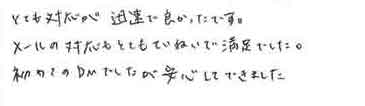 とても対応が迅速で良かったです。
メールの対応もとてもていねいで満足でした。
初めてのDMでしたが安心してできました